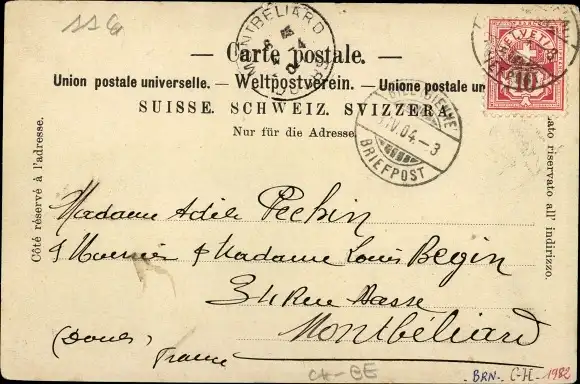 MONTBÉLIARD
— Carte postale. —
Union postale universelle. — Weltpostverein. — Unione postale un
SUISSE. SCHWEIZ. SVIZZERA.
Nur für die Adresse.
HELVETIA
10
04.-3
BRIEFPOST
Côté réservé à l'adresse.
lato riservato all' indirizzo.
Madame Adèle Pechin
Madame Louis Begin
34 Rue Basse
Montbéliard
(Doubs)
France
CH-BE
BRN. C-H- 1982